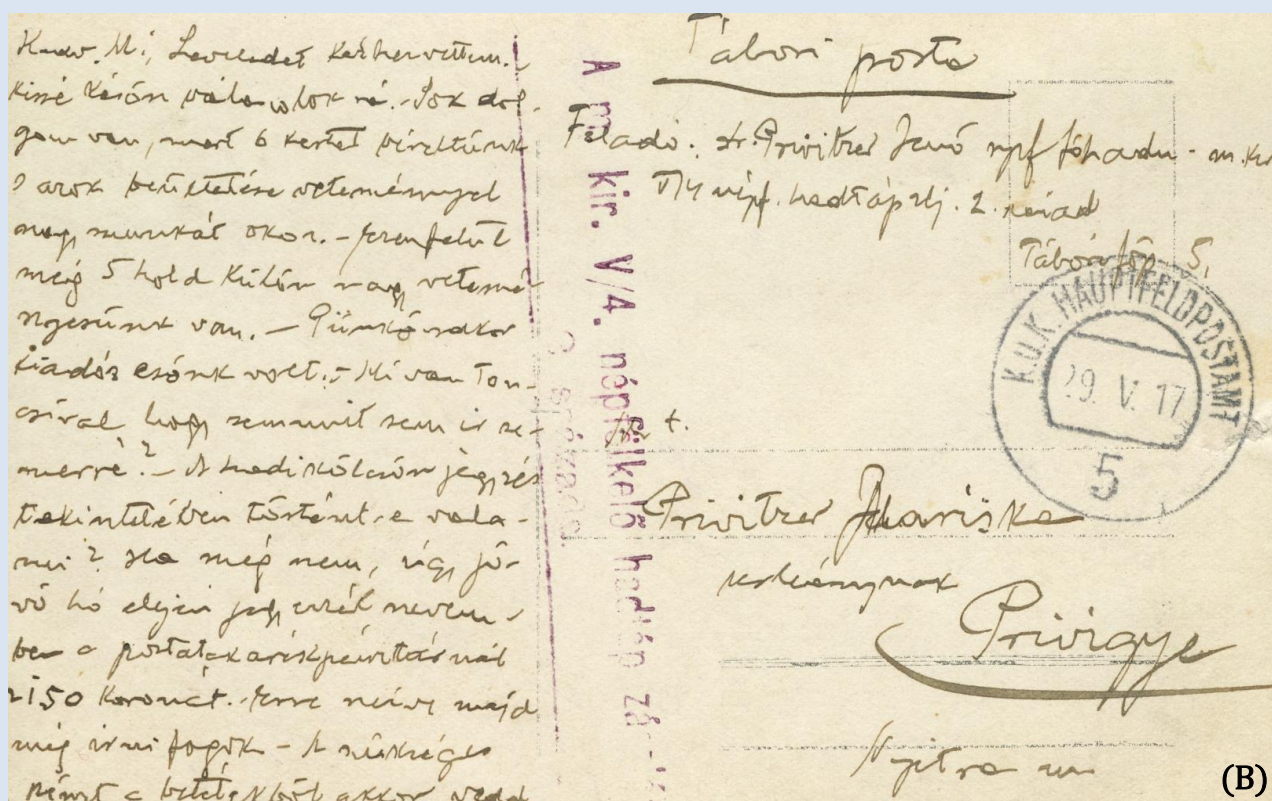 Leveledet kézhez vettem.
kissé későn válaszolok rá. - Sok dol-
gom van, mert 6 kertet béreltünk
s azok beültetése veteménnyel
nagy munkát okoz. - Ezenfelül
még 5 hold külön nagy vetemé-
nyesünk van. - Pünkösdkor
kiadós esőnk volt. - Mi van Ton-
csival hogy semmit sem ir se-
merre? - A hadikölcsön jegyzés
tekintetében történt-e vala-
mi? Ha még nem, úgy jö-
vő hó elején jegyezzél nevem-
ben a postatakarékpénztárnál
150 Koronát. - Erre nézve majd
még irni fogok - A szükséges
pénzt a betétekből akkor vedd
A m. kir. V/4. népfölkelő hadtáp zá
Tábori posta
Feladó: dr. Privitzer Jenő npf főhadn. m. kir
V/4 népf. hadtápzlj. 2. század
Tábori főp. 5.
K.U.K. HAUPTFELDPOSTAMT
29. V. 17
5
Privitzer Mariska
urleánynak
Privigye
Nyitra m
(B)